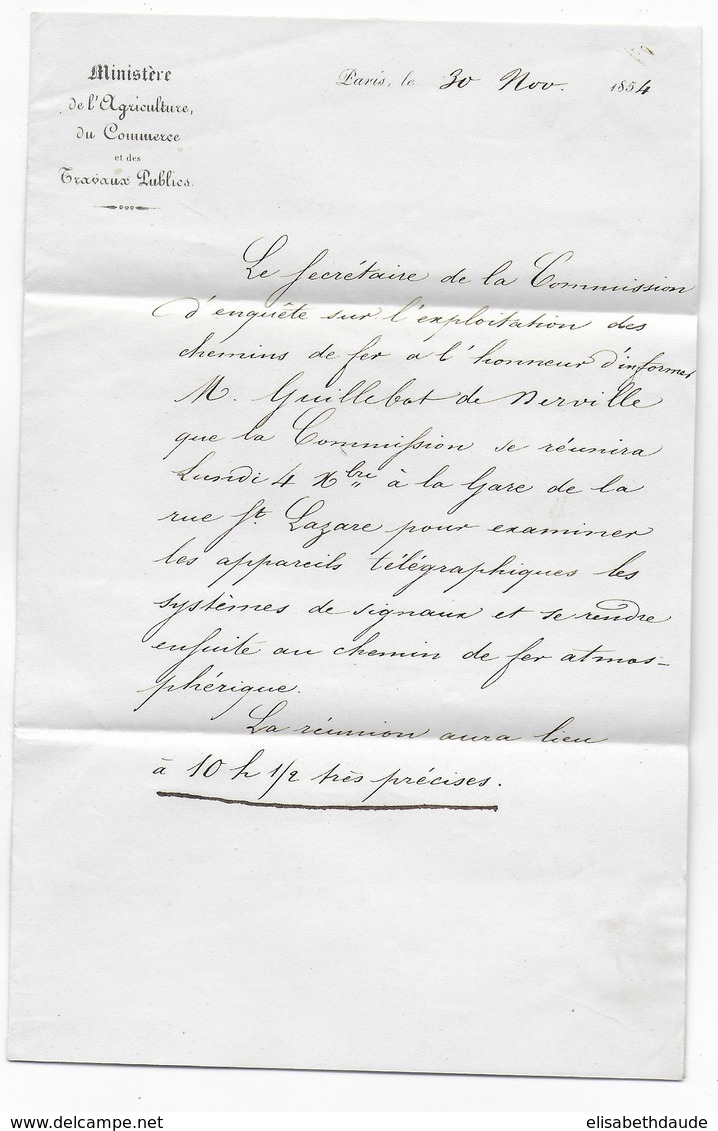 Ministère
de l'Agriculture,
du Commerce
et des
Travaux Publics.
Paris, le 30 Nov. 1854
Le Secrétaire de la Commission
d'enquête sur l'exploitation des
chemins de fer a l'honneur d'informer
M. Guillebot de Nerville
que la Commission se réunira
Lundi 4 Xbre à la Gare de la
rue St. Lazare pour examiner
les appareils télégraphiques les
systèmes de signaux et se rendre
ensuite au chemin de fer atmos-
phérique.
La réunion aura lieu
à 10 h 1/2 très précises.
delcampe.net
elisabethdaude